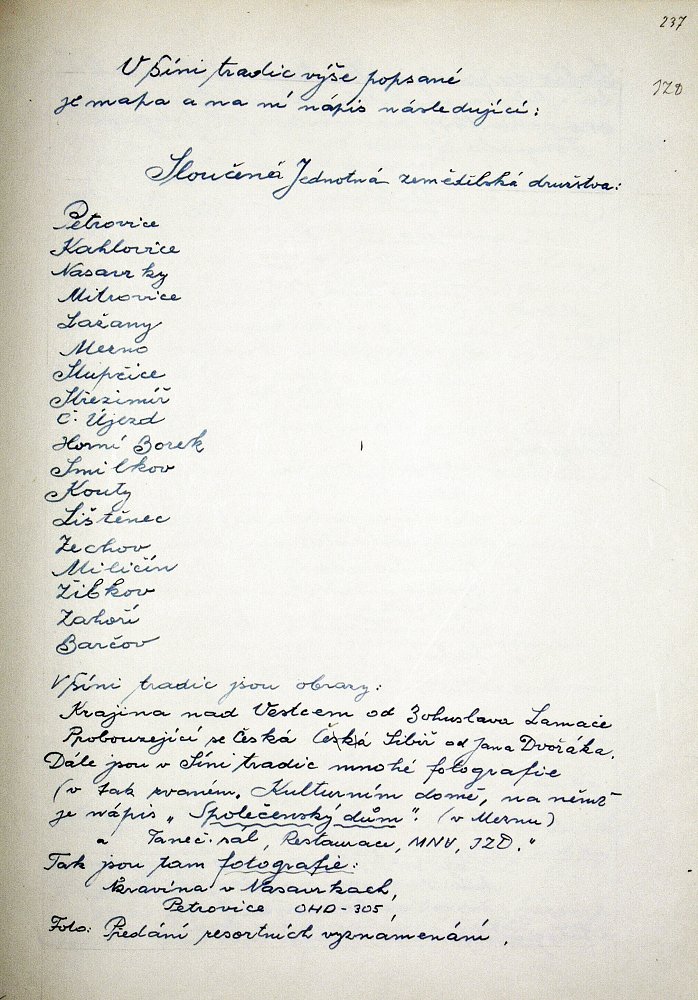 237
JZD
V Síni tradic výše popsané
je mapa a na ní nápis následující:
Sloučená Jednotná zemědělská družstva:
Petrovice
Kahlovice
Nasavrky
Mitrovice
Lažany
Mezno
Stupčice
Střezimíř
Č. Újezd
Horní Borek
Smilkov
Kouty
Lištěnec
Zechov
Miličín
Žibkov
Zahoří
Barčov
V Síni tradic jsou obrazy:
Krajina nad Vestcem od Bohuslava Lamače
Probouzející se Česká Česká Sibiř od Jana Dvořáka.
Dále jsou v Síni tradic mnohé fotografie
(v tak zvaném, Kulturním domě, na němž
je nápis „Společenský dům". (v Meznu)
a Taneč. sál, Restaurace, MNV, JZD."
Tak jsou tam fotografie:
Kravína v Nasavrkach,
Petrovice OHO-305,
Foto: Předání resortních vyznamenání.